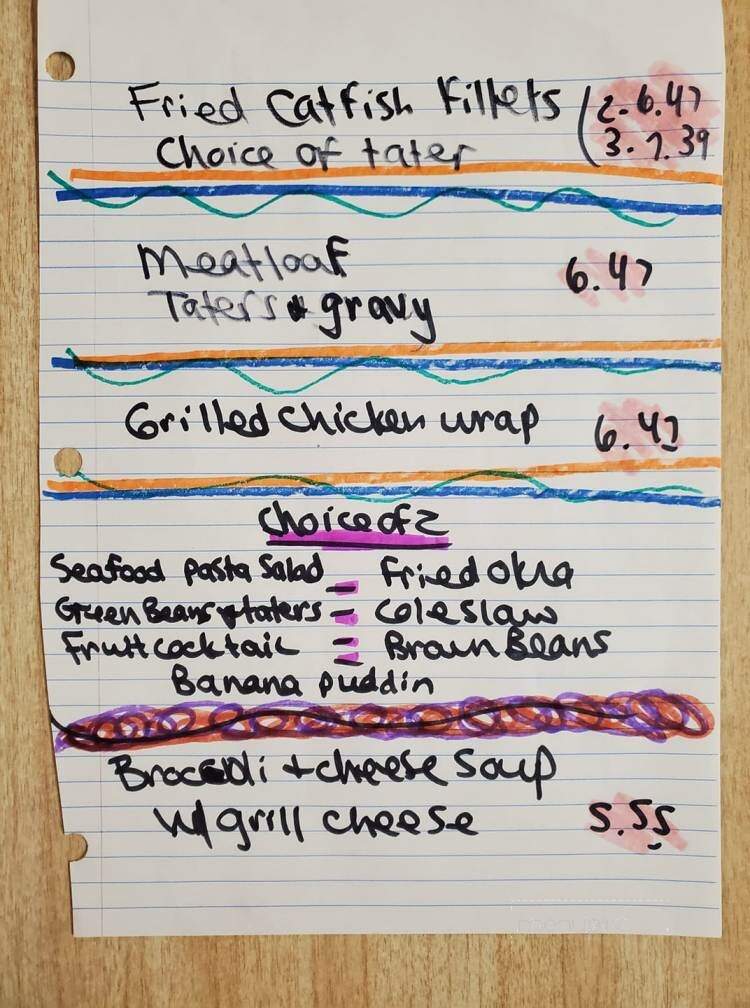 Fried Catfish Fillets (2. 6.47
Choice of tater 3. 7.39
Meatloaf 6.47
Taters & gravy
Grilled Chicken wrap 6.47
Choice of 2
Seafood Pasta Salad - Fried Okra
Green Beans & taters - Coleslaw
Fruit cocktail - Brown Beans
Banana puddin
Broccoli + cheese Soup
w/ grill cheese 5.55